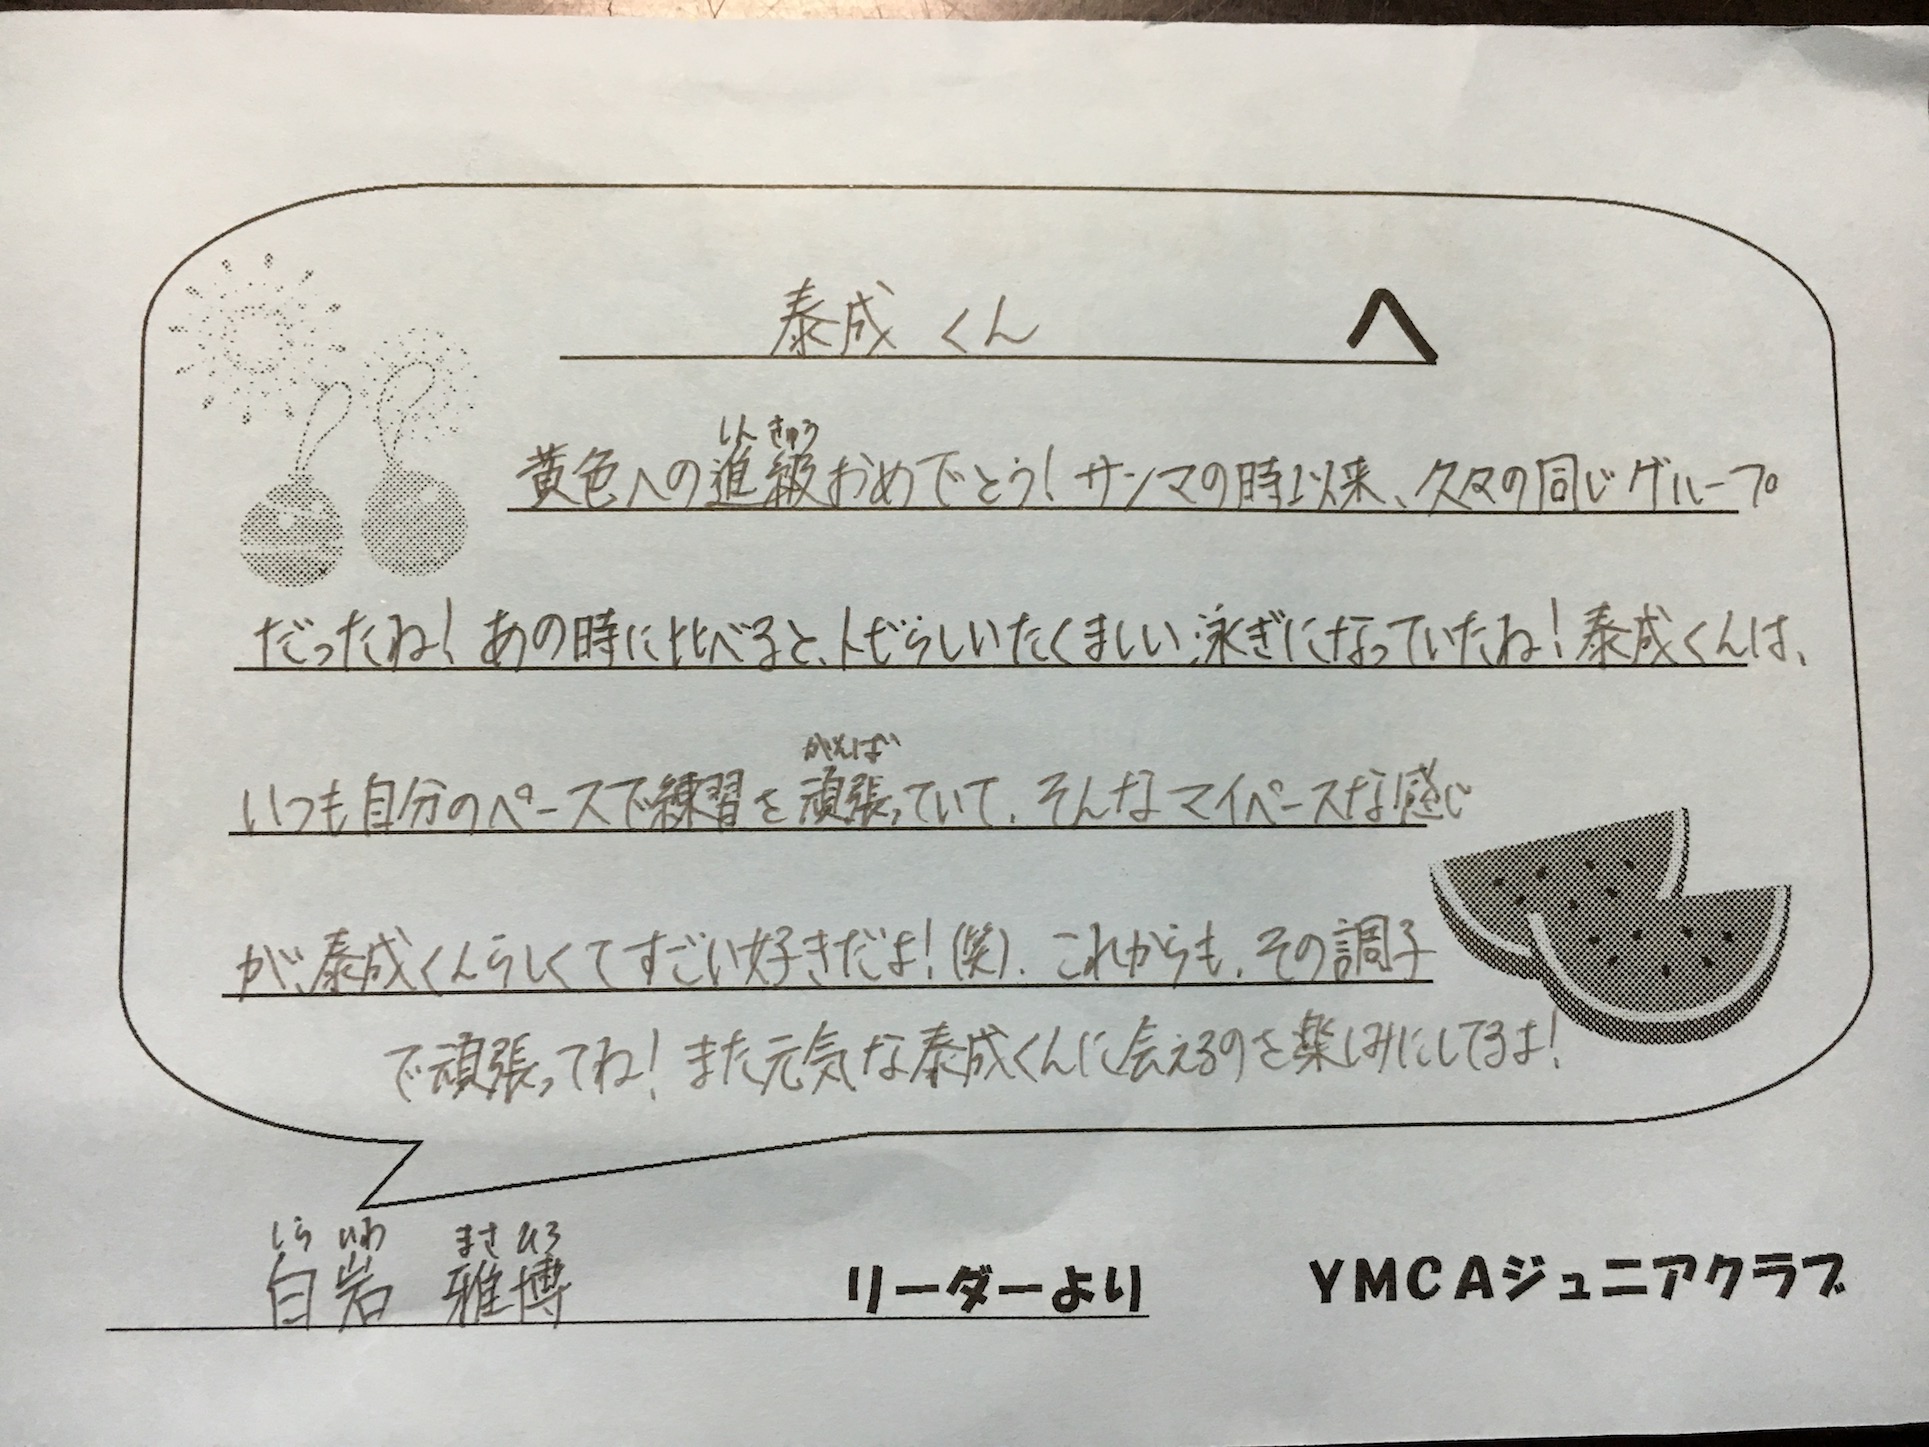 泰成くん へ
しん きゅう
黄色への進級おめでとう！サンマの時以来、久々の同じグループ
だったね！あの時に比べると、トビらしいたくましい泳ぎになっていたね！泰成くんは、
がんば
いつも自分のペースで練習を頑張っていて、そんなマイペースな感じ
が、泰成くんらしくてすごい好きだよ！(笑)、これからも、その調子
で頑張ってね！また元気な泰成くんに会えるのを楽しみにしてるよ！
しら いわ まさ ひろ
白岩 雅博 リーダーより YMCAジュニアクラブ